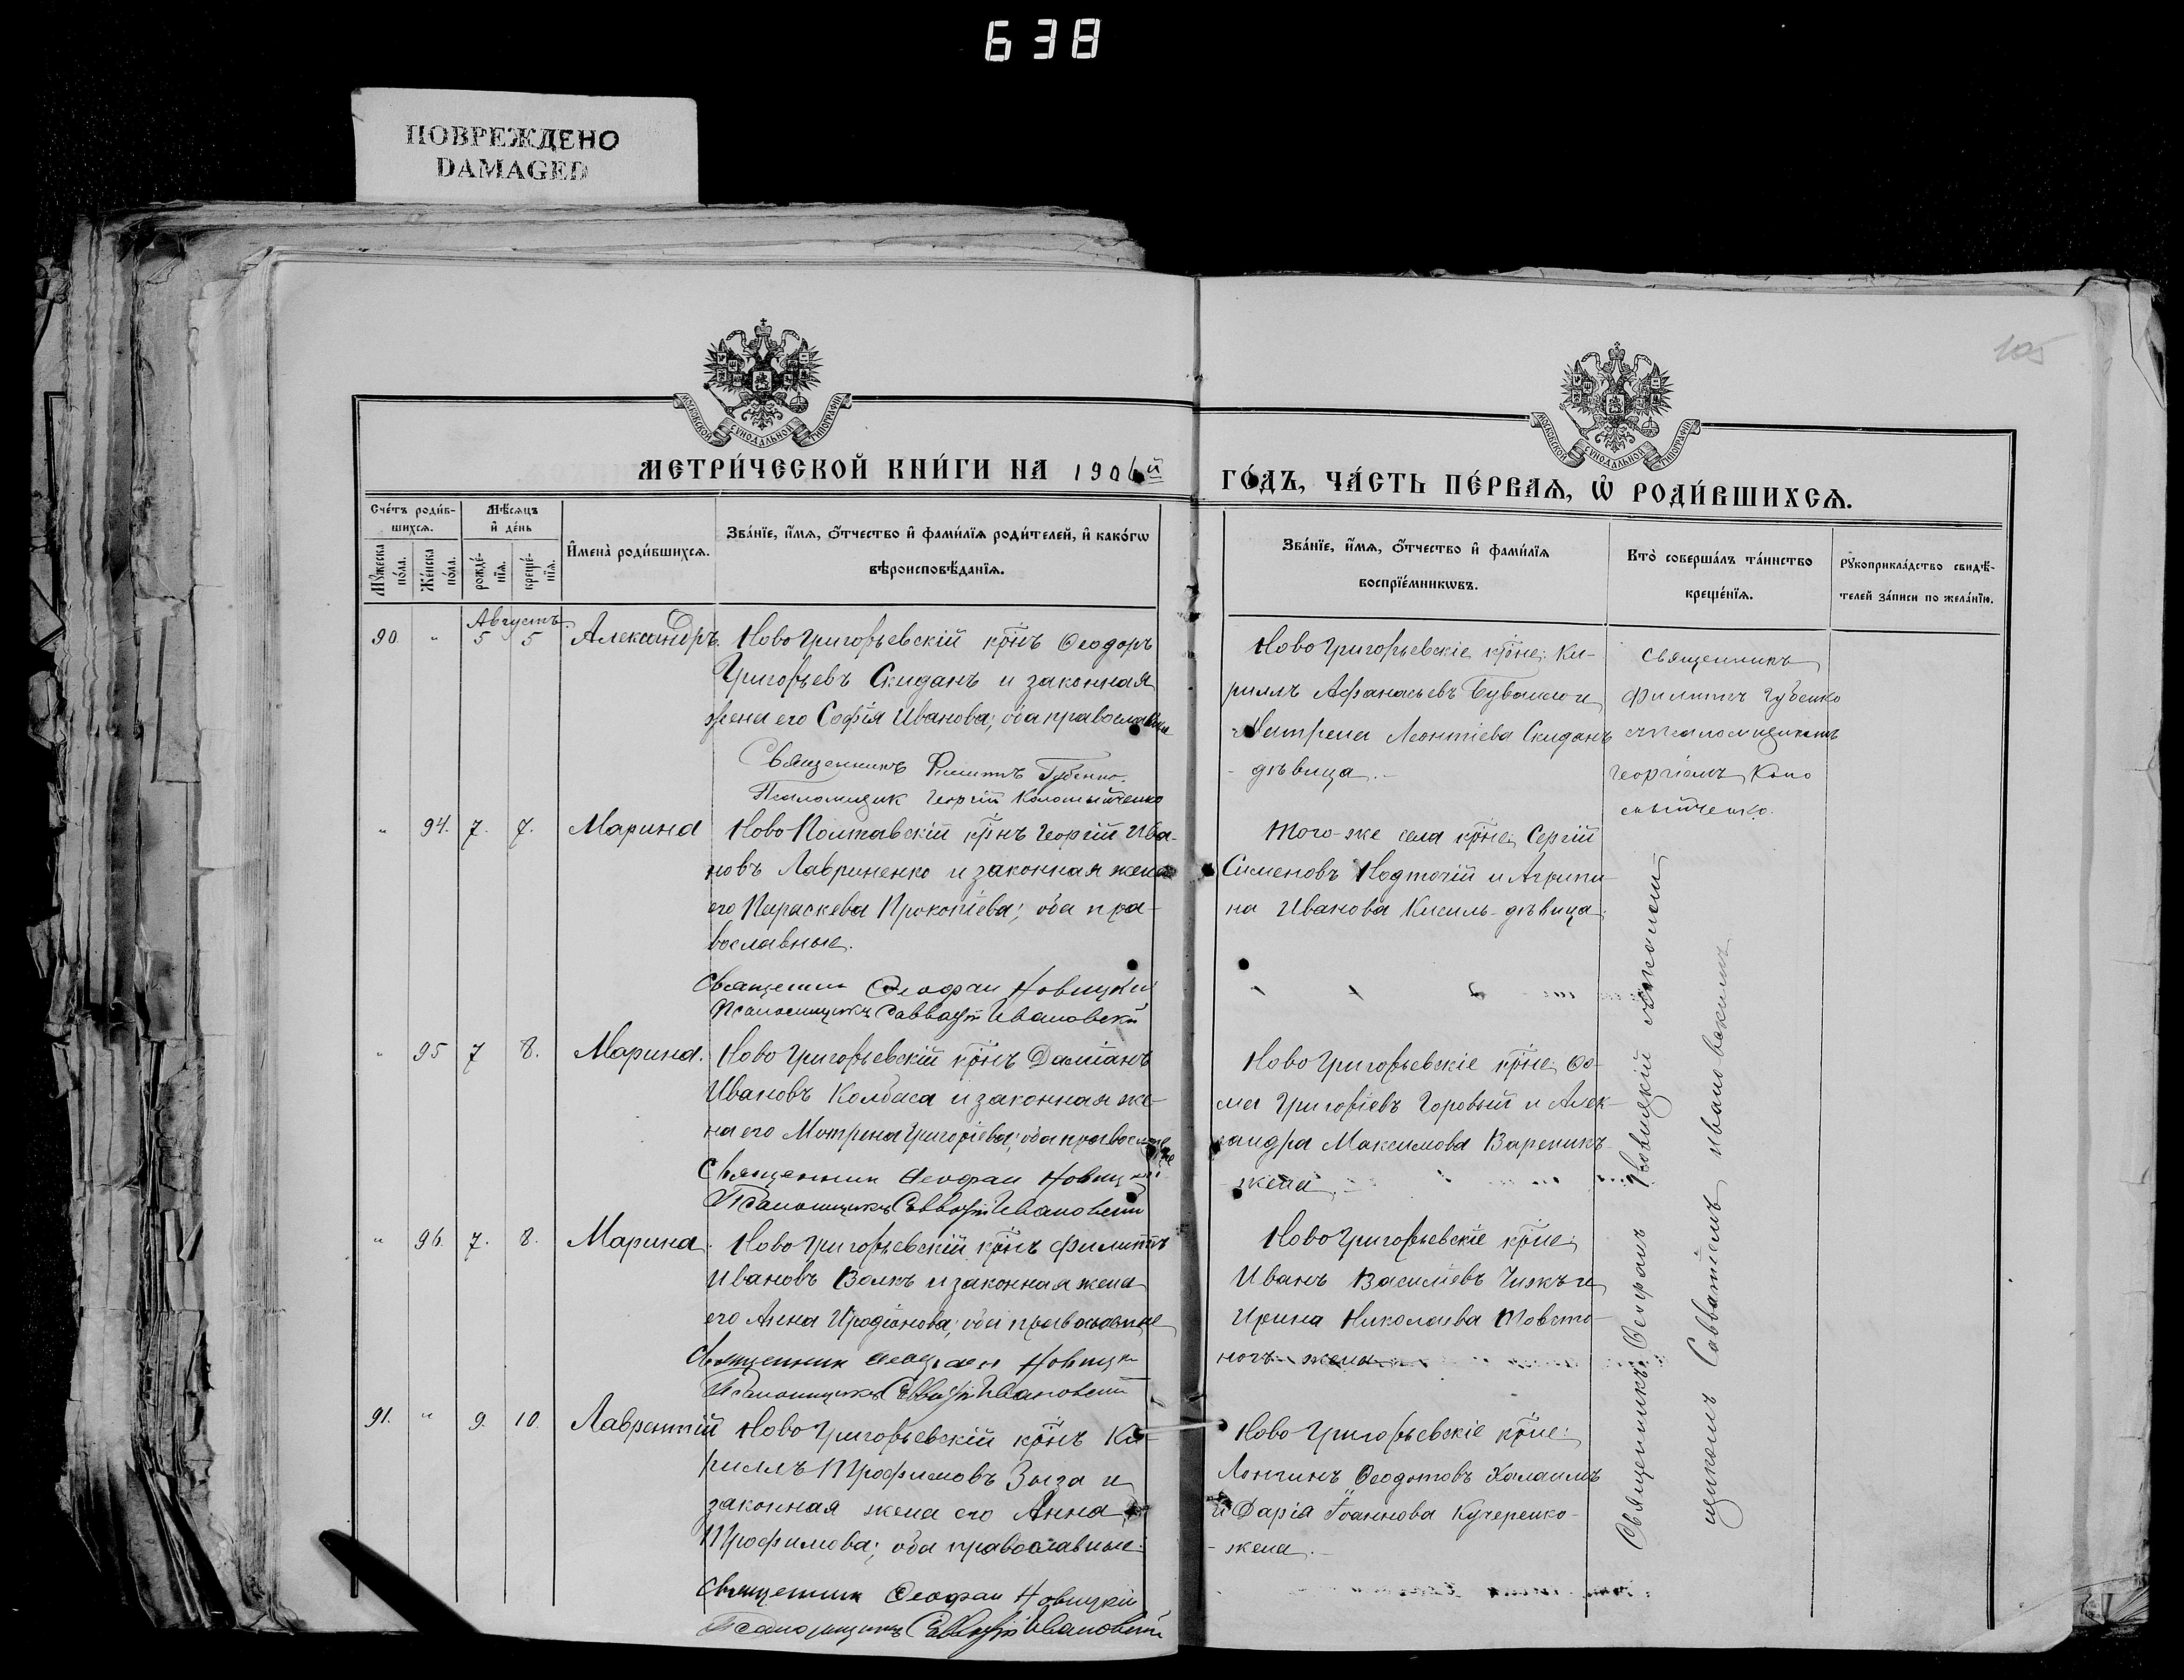 638
ПОВРЕЖДЕНО
DAMAGED
105
МОСКОВСКОЙ СУНОДАЛЬНОЙ ТИПОГРАФІИ
МОСКОВСКОЙ СУНОДАЛЬНОЙ ТИПОГРАФІИ
МЕТРИ́ЧЕСКОЙ КНИ́ГИ НА 1906й
ГО́ДЪ, ЧА́СТЬ ПЕ́РВАѦ, Ѡ РОДИ́ВШИХСѦ.
Сче́тъ роди́в-
шихсѧ.
Мꙋ́жеска по́ла.
Же́нска по́ла.
Мѣ́сѧцъ
и҆ де́нь
рожде́-
нїѧ.
креще́-
нїѧ.
И҆мена̀ роди́вшихсѧ.
Зва́нїе, и҆́мѧ, ѻ҆́тчество и҆ фами́лїѧ роди́телей, и҆ како́гѡ
вѣроисповѣ́данїѧ.
Зва́нїе, и҆́мѧ, ѻ҆́тчество и҆ фами́лїѧ
воспрїе́мникѡвъ.
Кто̀ соверша́лъ та́инство
креще́нїѧ.
Рꙋкоприкла́дство свидѣ́-
телей за́писи по жела́нїю.
Августъ
90. " 5 5 Александръ. Ново Григорьевскій крн̃ъ Ѳеодоръ
Григорьевъ Скиданъ и законная
жена его Софія Иванова; оба православные
Священникъ Филиппъ Губенко.
Псаломщик Георгій Коломыйченко
Ново Григорьевскіе крн̃е: Ки-
риллъ Афанасьевъ и
Матрена Леонтіева Скиданъ
- дѣвица.-
Священникъ
Филиппъ Губенко
съ псаломщикомъ
Георгіемъ Коло
мыйченко.
" 94. 7. 7. Марина Ново Полтавскій крн̃ъ Георгій Ива-
новъ Лавриненко и законная жена
его Параскева Прокопіева; оба пра-
вославные.
Священник Ѳеофан Новицкій
Псаломщикъ Савватій Ивановскій
Того-же села крн̃е: Сергій
Сименовъ и Агрипи-
на Иванова Кисиль-дѣвица.
" 95 7 8. Марина. Ново Григорьевскій крн̃ъ Даміанъ
Ивановъ Колбаса и законная же-
на его Матрена Григоріева; оба православные
Священник Ѳеофан Новицкій
Псаломщикъ Савватій Ивановскій
Ново Григорьевскіе крн̃е: Ѳо-
ма Григоріевъ Горовый и Алек-
сандра Максимова Вареникъ-
- жена.
" 96. 7. 8. Марина. Ново Григорьевскій крн̃ъ Филиппъ
Ивановъ Волкъ и законная жена
его Анна Иродіонова; оба православные
Священник Ѳеофан Новицкій
Псаломщикъ Савватій Ивановскій
Ново Григорьевскіе крн̃е:
Иванъ Василіевъ Чижъ и
Ирина Николаева Товсто-
ногъ - жена.
91. " 9. 10. Лаврентій Ново Григорьевскій крн̃ъ Ки-
риллъ Трофимовъ Зыза и
законная жена его Анна
Трофимова; оба православные.
Священник Ѳеофан Новицкій
Псаломщикъ Савватій Ивановскій
Ново Григорьевскіе крн̃е:
Лонгинъ Ѳеодотовъ Халаимъ
и Дарія Іоаннова Кучеренко-
- жена.-
Священникъ Ѳеофанъ Новицкій съ псалом-
щикомъ Савватіемъ Ивановскимъ